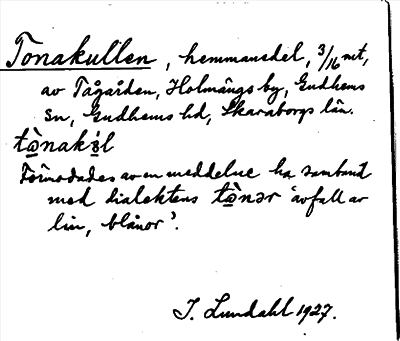 Tonakullen, hemmansdel, 3/16 mt,
av Tågården, Holmängs by, Gudhems
sn, Gudhems hd, Skaraborgs län.
Förmodades av en meddelare ha samband
med dialektens "avfall av
lin, blånor".
J. Lundahl 1927.